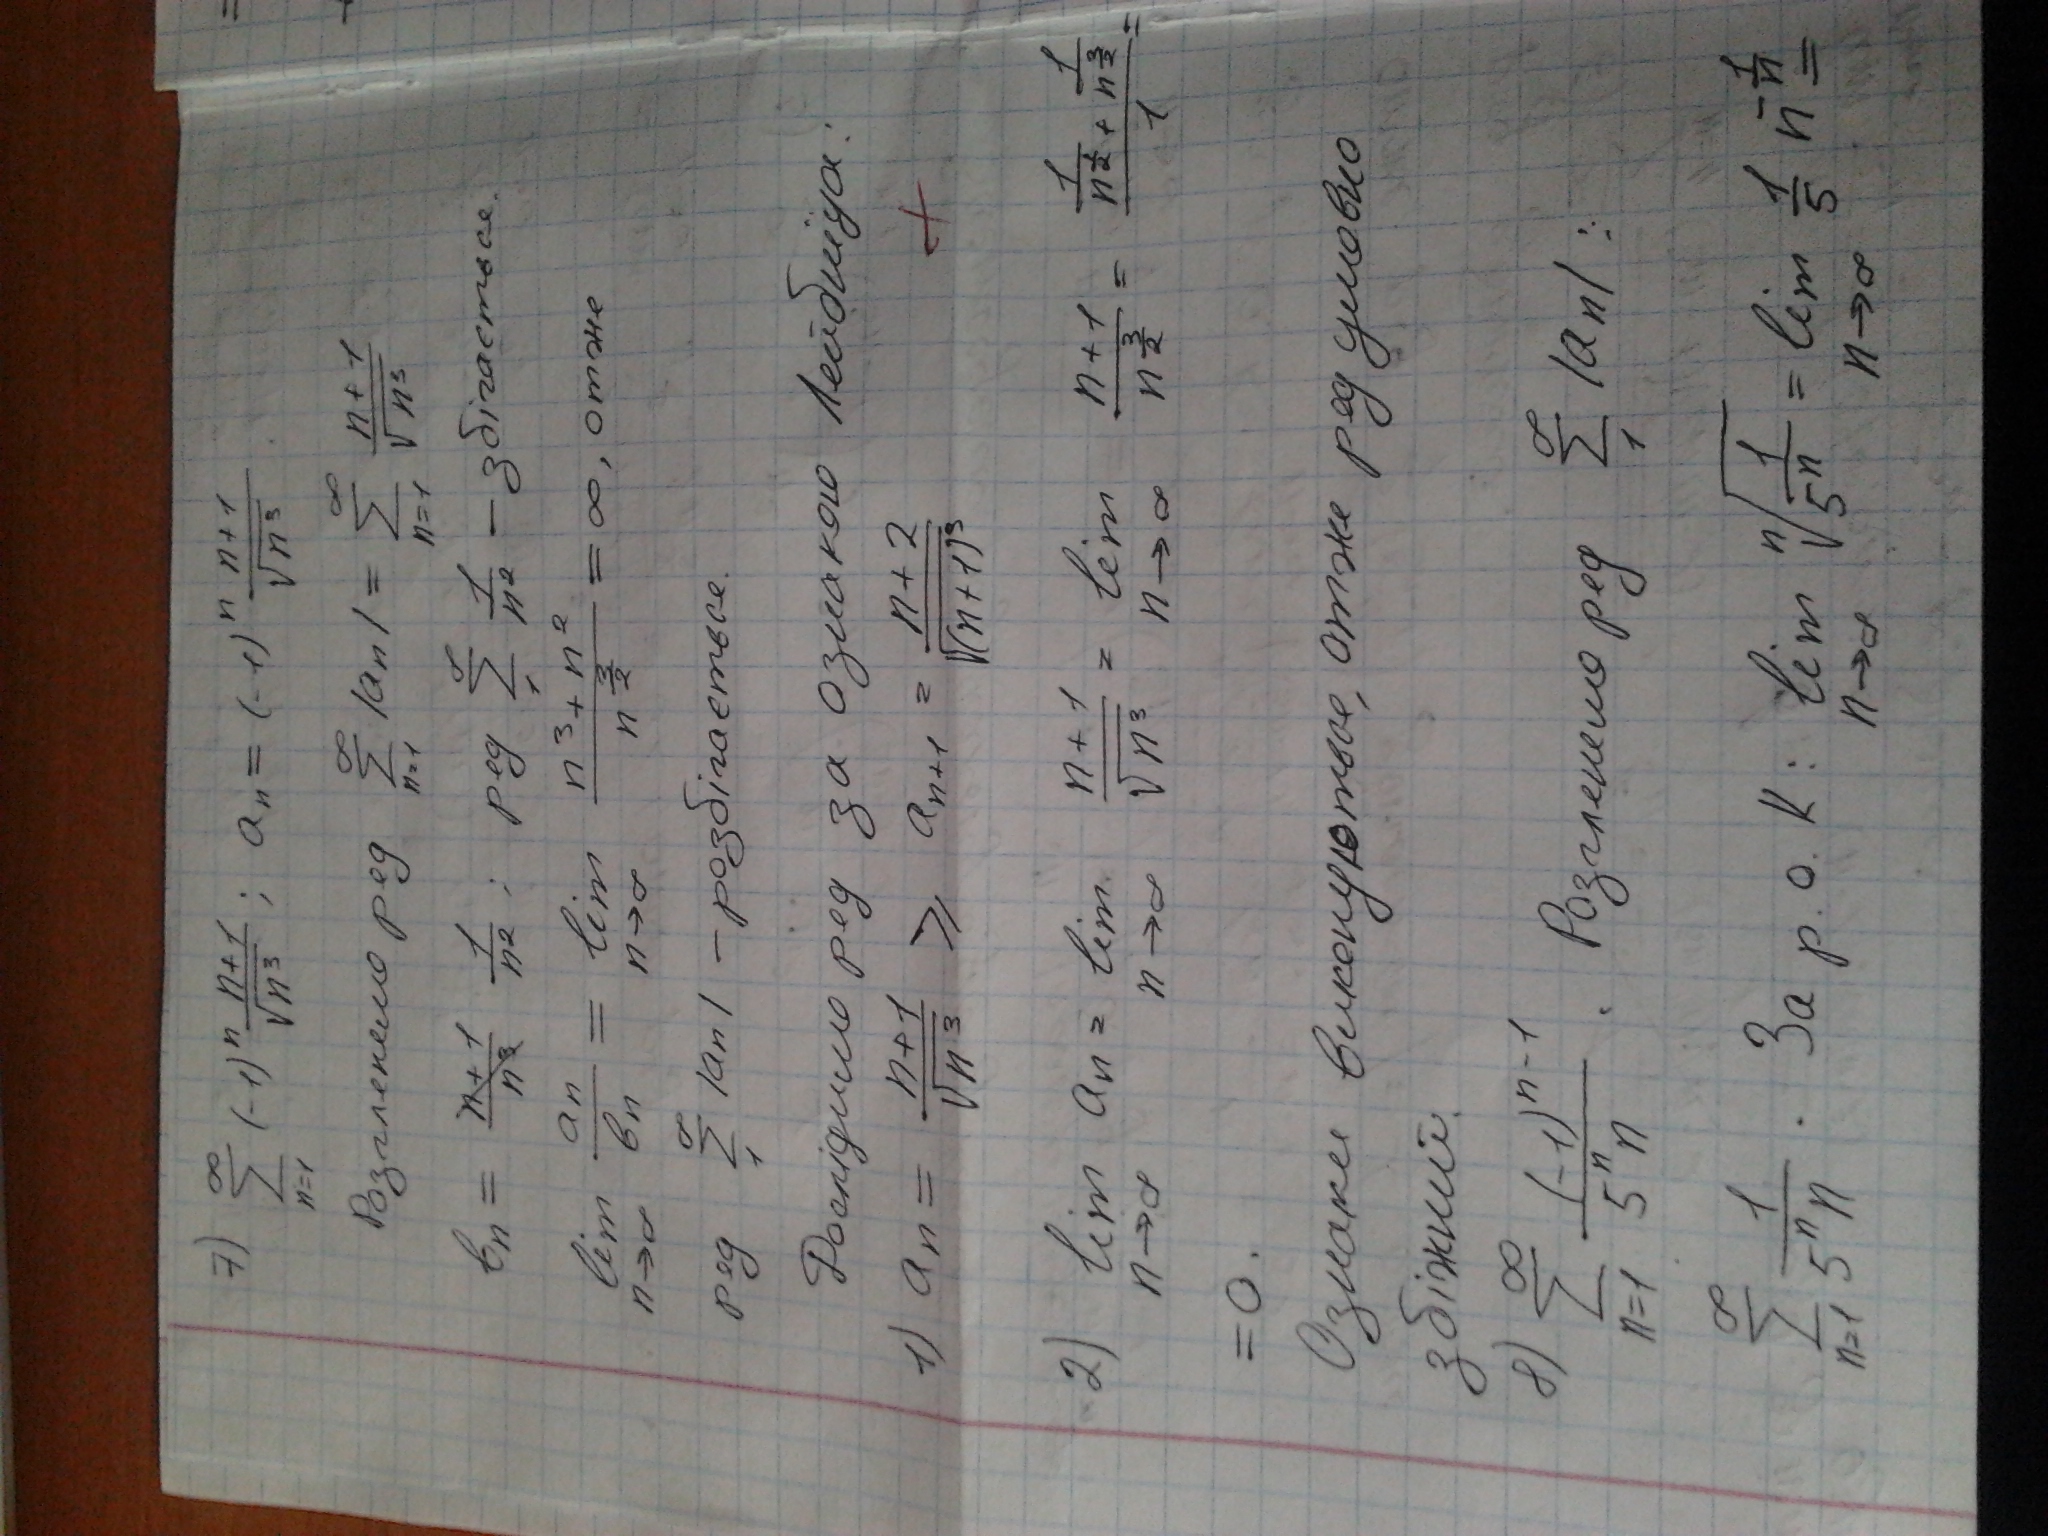 7) ∑_{n=1}^{∞} (-1)^n (n+1)/√(n³) ; aₙ = (-1)^n (n+1)/√(n³)
Розгленемо ряд ∑_{n=1}^{∞} |aₙ| = ∑_{n=1}^{∞} (n+1)/√(n³)
bₙ = 1/n² ; ряд ∑_{1}^{∞} 1/n² – збігається.
lim_{n→∞} aₙ/bₙ = lim_{n→∞} (n³+n²)/n^{3/2} = ∞, отже
ряд ∑_{1}^{∞} |aₙ| – розбігається.
Дослідимо ряд за ознакою Лейбніца:
1) aₙ = (n+1)/√(n³) ⩾ aₙ₊₁ = (n+2)/√((n+1)³) +
2) lim_{n→∞} aₙ = lim_{n→∞} (n+1)/√(n³) = lim_{n→∞} (n+1)/n^{3/2} = (1/n^{1/2} + 1/n^{3/2})/1 =
= 0.
Ознаки виконуються, отже ряд умовно
збіжний.
8) ∑_{n=1}^{∞} (-1)^{n-1}/(5ⁿn) . Розгленемо ряд ∑_{1}^{∞} |aₙ| :
∑_{n=1}^{∞} 1/(5ⁿn) . За р.о.К: lim_{n→∞} ⁿ√(1/5ⁿ) = lim_{n→∞} 1/5 n^{-1/n} =